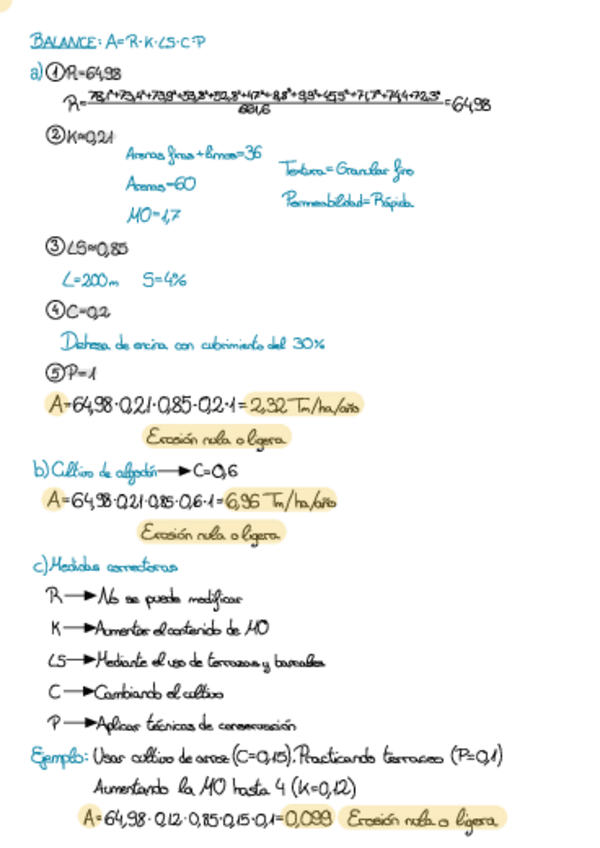 BALANCE: A=R·K·LS·C·P
a) ① R=64,98
R= 78,1²+73,4²+73,9²+53,8²+52,8²+47²+8,8²+9,9²+45,5²+71,7²+74,4+72,3² / 661,6 =64,98
② K≈0,21
Arenas finas+limos=36
Textura=Granular fino
Arenas=60
Permeabilidad=Rápida
MO=1,7
③ LS≈0,85
L=200m S=4%
④ C=0,2
Dehesa de encina con cubrimiento del 30%
⑤ P=1
A=64,98·0,21·0,85·0,2·1=2,32 Tm/ha/año
Erosión nula o ligera
b) Cultivo de algodón → C=0,6
A=64,98·0,21·0,85·0,6·1=6,96 Tm/ha/año
Erosión nula o ligera
c) Medidas correctoras
R → No se puede modificar
K → Aumentar el contenido de MO
LS → Mediante el uso de terrazas y bancales
C → Cambiando el cultivo
P → Aplicar técnicas de conservación
Ejemplo: Usar cultivo de arroz (C=0,15). Practicando terraceo (P=0,1)
Aumentando la MO hasta 4 (K=0,12)
A=64,98·0,12·0,85·0,15·0,1=0,099 Erosión nula o ligera